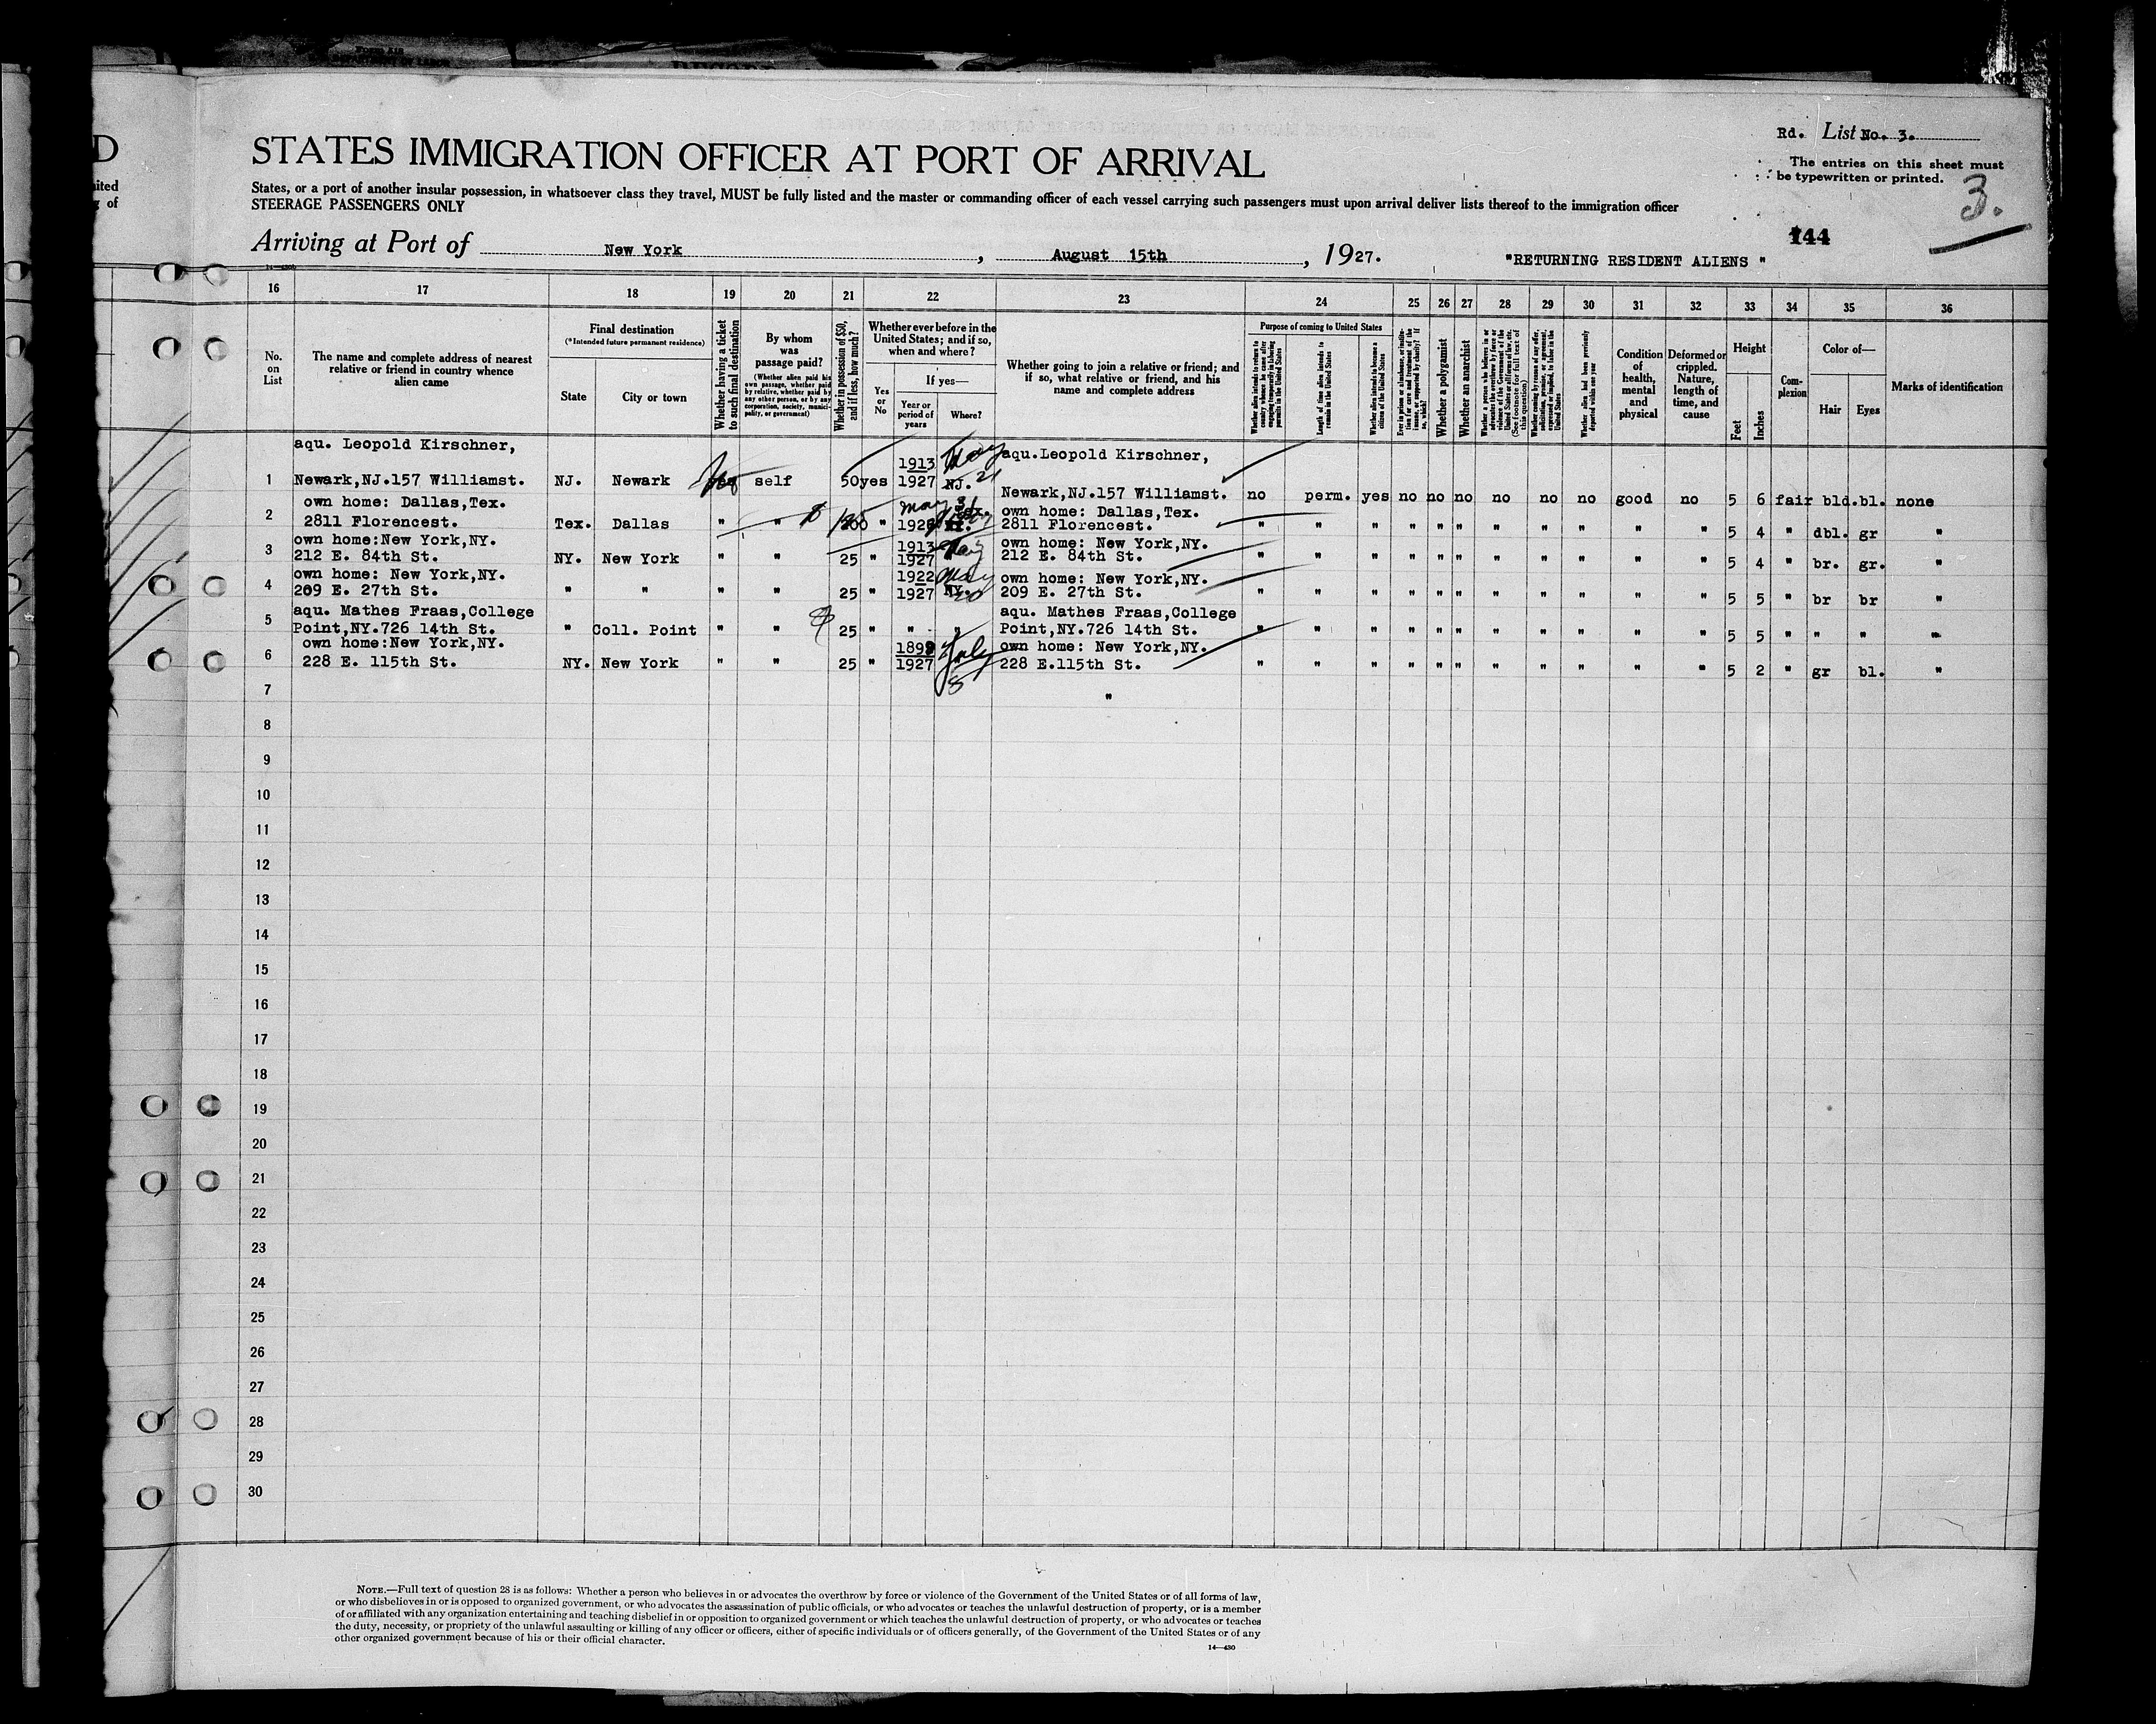 D
STATES IMMIGRATION OFFICER AT PORT OF ARRIVAL
Rd. List No. 3.
The entries on this sheet must
be typewritten or printed.
3.
States, or a port of another insular possession, in whatsoever class they travel, MUST be fully listed and the master or commanding officer of each vessel carrying such passengers must upon arrival deliver lists thereof to the immigration officer
STEERAGE PASSENGERS ONLY
144
Arriving at Port of New York, August 15th, 1927. "RETURNING RESIDENT ALIENS "
16 17 18 19 20 21 22 23 24 25 26 27 28 29 30 31 32 33 34 35 36
No. on List
The name and complete address of nearest relative or friend in country whence alien came
Final destination
(*Intended future permanent residence)
State
City or town
Whether having a ticket to such final destination
By whom was passage paid?
(Whether alien paid his own passage, whether paid by relative, whether paid by any other person, or by any corporation, society, municipality, or government)
Whether in possession of $50, and if less, how much?
Whether ever before in the United States; and if so, when and where?
Yes or No
If yes—
Year or period of years
Where?
Whether going to join a relative or friend; and if so, what relative or friend, and his name and complete address
Purpose of coming to United States
Whether alien intends to return to country whence he came after engaging temporarily in laboring pursuits in the United States
Length of time alien intends to remain in the United States
Whether alien intends to become a citizen of the United States
Whether a polygamist
Whether an anarchist
(See footnote for full text of this question)
Whether alien had been previously deported within one year
Condition of health, mental and physical
Deformed or crippled. Nature, length of time, and cause
Height
Feet
Inches
Complexion
Color of—
Hair
Eyes
Marks of identification
aqu. Leopold Kirschner, 1913 May aqu.Leopold Kirschner,
1 Newark,NJ.157 Williamst. NJ. Newark self 50 yes 1927 NJ. 21 Newark,NJ.157 Williamst. no perm. yes no no no no no no good no 5 6 fair bld. bl. none
own home: Dallas,Tex. May 31 own home: Dallas,Tex.
2 2811 Florencest. Tex. Dallas " " " 1926 2811 Florencest. " " " " " " " " " " " 5 4 " dbl. gr "
own home:New York,NY. 1913 May own home: New York,NY.
3 212 E. 84th St. NY. New York " " 25 " 1927 212 E. 84th St. " " " " " " " " " " " 5 4 " br. gr. "
own home: New York,NY. 1922 May own home: New York,NY.
4 209 E. 27th St. " " " " 25 " 1927 NY. 209 E. 27th St. " " " " " " " " " " " 5 5 " br br "
aqu. Mathes Fraas,College aqu. Mathes Fraas,College
5 Point,NY.726 14th St. " Coll. Point " " 25 " " " Point,NY.726 14th St. " " " " " " " " " " " 5 5 " " " "
own home:New York,NY. July own home: New York,NY.
6 228 E. 115th St. NY. New York " " 25 " 1927 8 228 E.115th St. " " " " " " " " " " " 5 2 " gr bl. "
7 "
8
9
10
11
12
13
14
15
16
17
18
19
20
21
22
23
24
25
26
27
28
29
30
NOTE.—Full text of question 28 is as follows: Whether a person who believes in or advocates the overthrow by force or violence of the Government of the United States or of all forms of law,
or who disbelieves in or is opposed to organized government, or who advocates the assassination of public officials, or who advocates or teaches the unlawful destruction of property, or is a member
of or affiliated with any organization entertaining and teaching disbelief in or opposition to organized government or which teaches the unlawful destruction of property, or who advocates or teaches
the duty, necessity, or propriety of the unlawful assaulting or killing of any officer or officers, either of specific individuals or of officers generally, of the Government of the United States or of any
other organized government because of his or their official character.
14—430